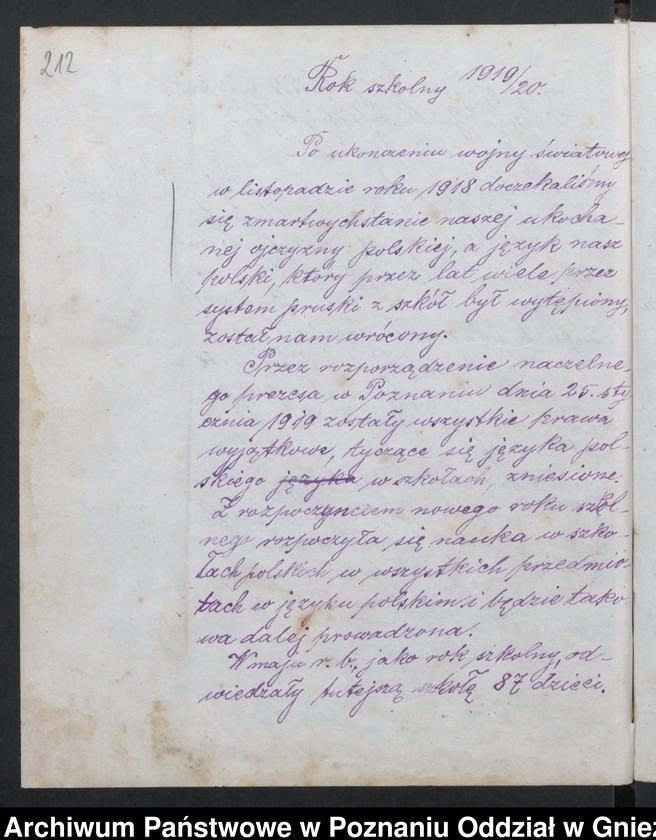 212
Rok szkolny 1919/20.
Po ukończeniu wojny światowej
w listopadzie roku 1918 doczekaliśmy
się zmartwychstanie naszej ukocha-
nej ojczyzny polskiej, a język nasz
polski, który przez lat wiele przez
system pruski z szkół był wytępiony,
został nam wrócony.
Przez rozporządzenie naczelne-
go prezesa w Poznaniu dnia 25. sty
cznia 1919 zostały wszystkie prawa
wyjątkowe, tyczące się języka pol-
skiego języka w szkołach, zniesione.
Z rozpoczynciem nowego roku szkol-
nego rozpoczyła się nauka w szko-
łach polskich w wszystkich przedmio-
tach w języku polskim i będzie tako-
wa dalej prowadzona.
W maju r. b., jako rok szkolny, od-
wiedzały tutejszą szkołę 87 dzieci.
Archiwum Państwowe w Poznaniu Oddział w Gniez